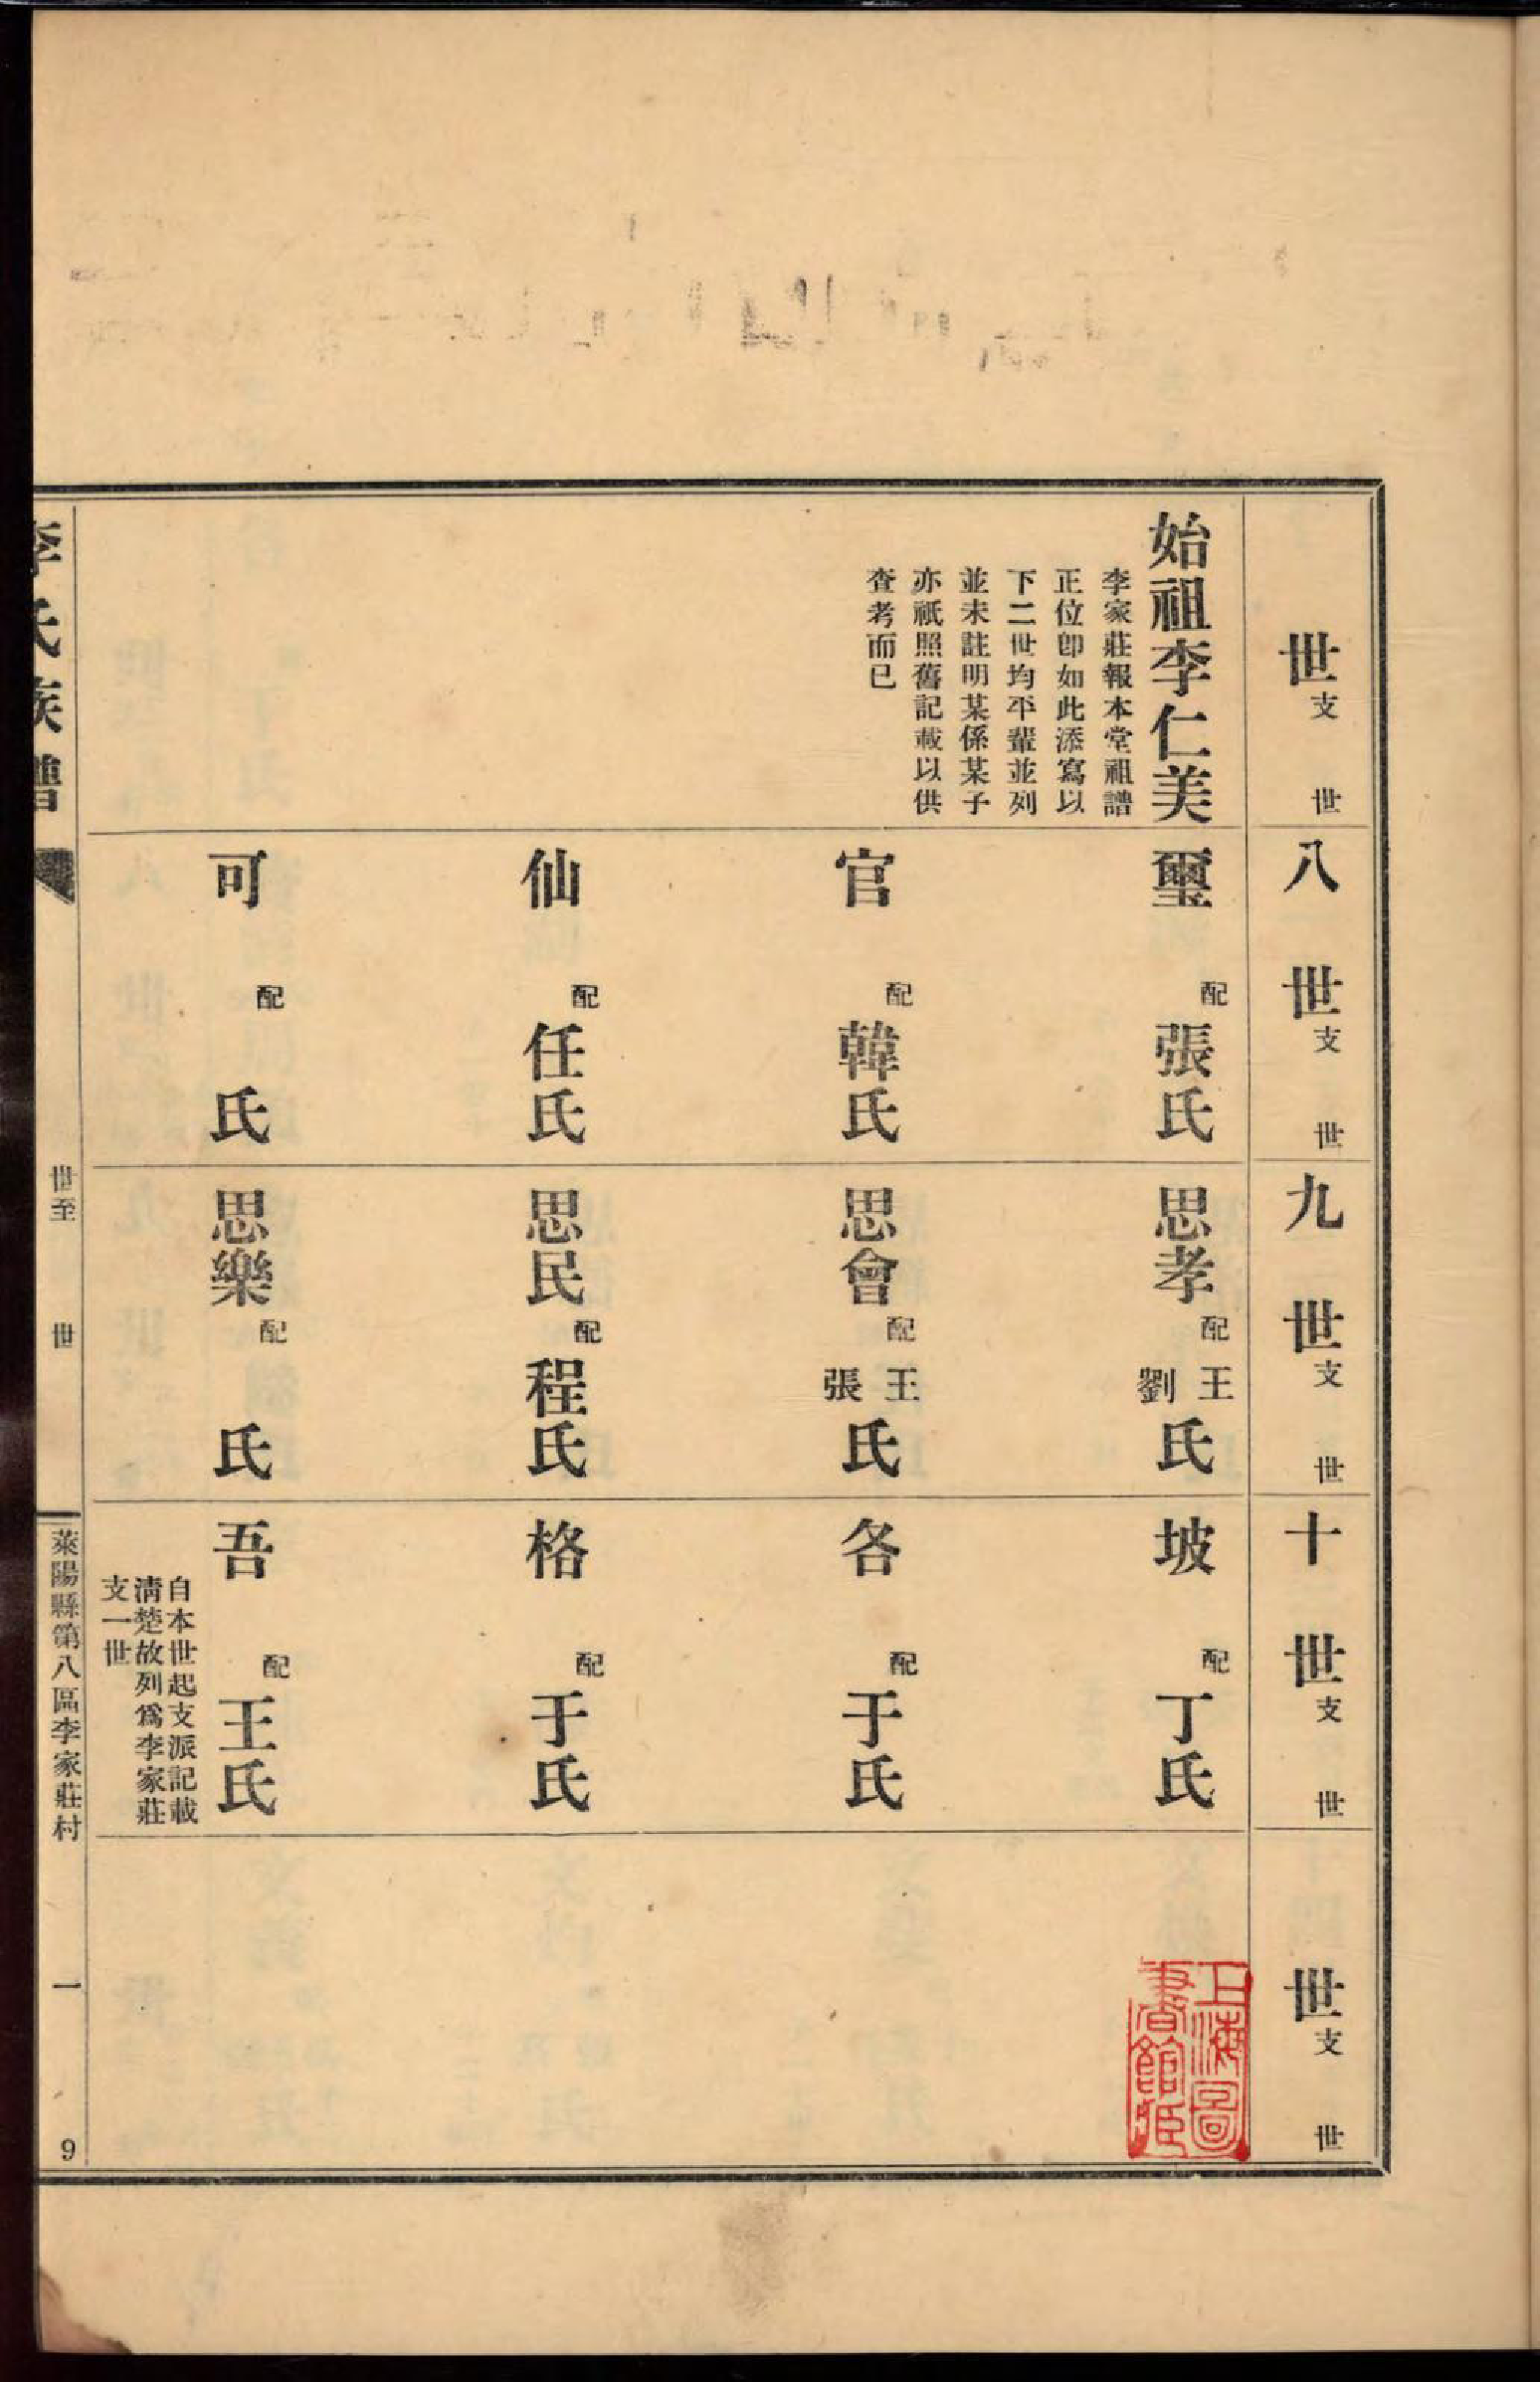 世支 世
八世支 世
九世支 世
十世支 世
世支 世
始祖李仁美
李家莊報本堂祖譜
正位卽如此添寫以
下二世均平輩並列
並未註明某係某子
亦祇照舊記載以供
查考而已
璽 配張氏
官 配韓氏
仙 配任氏
可 配 氏
思孝 配王劉氏
思會 配王張氏
思民 配程氏
思樂 配 氏
坡 配丁氏
各 配于氏
格 配于氏
吾 配王氏
自本世起支派記載
淸楚故列爲李家莊
支一世
上海圖
書館藏
李氏族譜
世至 世
萊陽縣第八區李家莊村
一
9